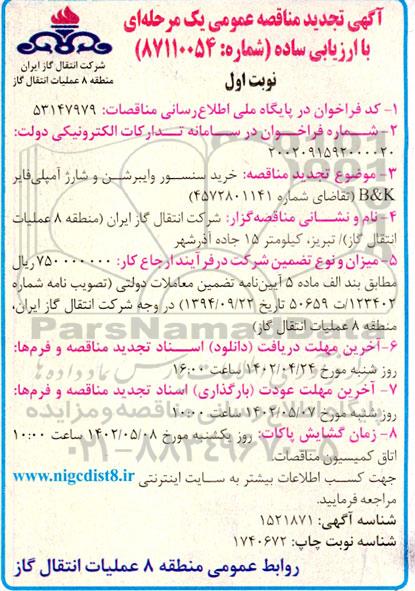 آگهی تجدید مناقصه عمومی یک مرحله‌ای
با ارزیابی ساده (شماره: ۸۷۱۱۰۰۵۴)
نوبت اول
شرکت انتقال گاز ایران
منطقه ۸ عملیات انتقال گاز
۱- کد فراخوان در پایگاه ملی اطلاع‌رسانی مناقصات: ۵۳۱۴۷۹۷۹
۲- شماره فراخوان در سامانه تدارکات الکترونیکی دولت:
۲۰۰۲۰۹۱۵۹۲۰۰۰۰۲۰
۳- موضوع تجدید مناقصه: خرید سنسور وایبرشن و شارژ آمپلی‌فایر
B&K (تقاضای شماره ۴۵۷۲۸۰۱۱۴۱)
۴- نام و نشانی مناقصه‌گزار: شرکت انتقال گاز ایران (منطقه ۸ عملیات
انتقال گاز)/ تبریز، کیلومتر ۱۵ جاده آذرشهر
۵- میزان و نوع تضمین شرکت در فرآیند ارجاع کار: ۷۵۰۰۰۰۰۰۰ ریال
مطابق بند الف ماده ۵ آیین‌نامه تضمین معاملات دولتی (تصویب نامه شماره
۱۲۳۴۰۲/ت ۵۰۶۵۹ تاریخ ۱۳۹۴/۰۹/۲۲) در وجه شرکت انتقال گاز ایران،
منطقه ۸ عملیات انتقال گاز)
۶- آخرین مهلت دریافت (دانلود) اسناد تجدید مناقصه و فرم‌ها:
روز شنبه مورخ ۱۴۰۲/۰۴/۲۴ ساعت ۱۶:۰۰
۷- آخرین مهلت عودت (بارگذاری) اسناد تجدید مناقصه و فرم‌ها:
روز شنبه مورخ ۱۴۰۲/۰۵/۰۷ ساعت ۱۰:۰۰
۸- زمان گشایش پاکات: روز یکشنبه مورخ ۱۴۰۲/۰۵/۰۸ ساعت ۱۰:۰۰
اتاق کمیسیون مناقصات.
جهت کسب اطلاعات بیشتر به سایت اینترنتی www.nigcdist8.ir
مراجعه فرمایید.
شناسه آگهی: ۱۵۲۱۸۷۱
شناسه نوبت چاپ: ۱۷۴۰۶۷۲
روابط عمومی منطقه ۸ عملیات انتقال گاز
ParsNamadData
۰۲۱-۸۸۳۴۹۶۷۰